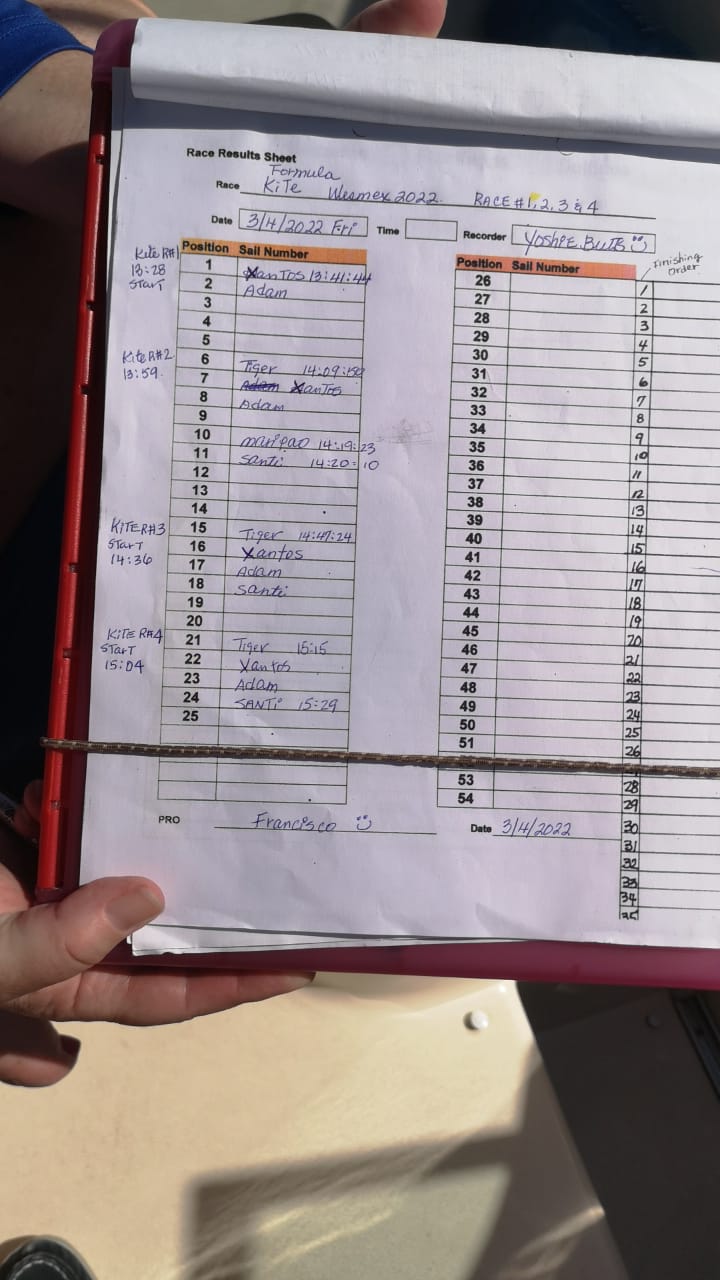 Race Results Sheet
Race Formula Kite Wesmex 2022. RACE #1, 2, 3 & 4
Date 3/4/2022 Fri Time Recorder
Kite R#1
13:28
Start
Position Sail Number
1 Xantos 13:41:44
2 Adam
3
4
5
Kite R#2
13:59.
6 Tiger 14:09:
7 Adam Xantos
8 Adam
9
10 14:19:23
11 Santi 14:20:10
12
13
14
KITE R#3
START
14:36
15 Tiger 14:47:24
16 Xantos
17 Adam
18 Santi
19
20
KITE R#4
START
15:04
21 Tiger 15:15
22 Xantos
23 Adam
24 SANTi 15:29
25
Position Sail Number
26
27
28
29
30
31
32
33
34
35
36
37
38
39
40
41
42
43
44
45
46
47
48
49
50
51
53
54
Finishing
Order
1
2
3
4
5
6
7
8
9
10
11
12
13
14
15
16
17
18
19
20
21
22
23
24
25
26
28
29
30
31
32
33
34
35
PRO Francisco Date 3/4/2022